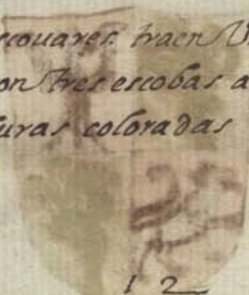 scouares. traen V
on tres escobas a
uras coloradas
12